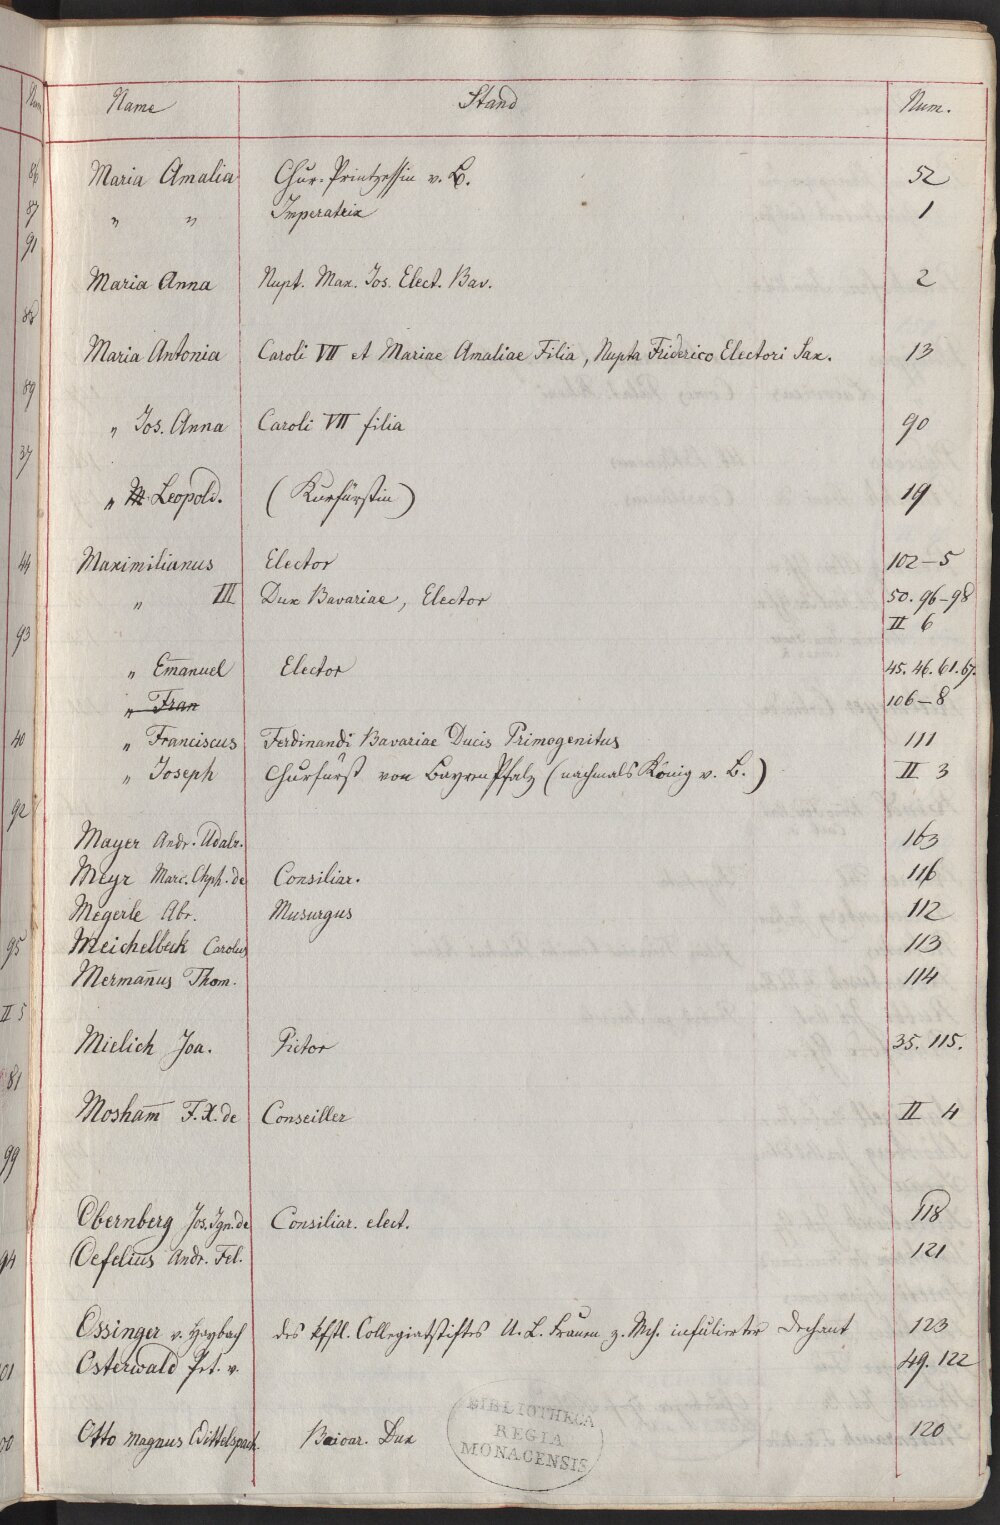 Num
86
87
91
88
89
37
44
93
40
92
95
II 5
81
99
94
01
00
Name Stand Num.
Maria Amalia Chur-Printzessin v. B. 52
„ „ Imperatrix 1
Maria Anna Nupt. Max. Jos. Elect. Bav. 2
Maria Antonia Caroli VII et Mariae Amaliae Filia, Nupta Friderico Electori Sax. 13
„ Jos. Anna Caroli VII filia 90
„ M Leopold. (Kurfürstin) 19
Maximilianus Elector 102-5
„ III Dux Bavariae, Elector 50. 96-98
II 6
„ Em̄anuel Elector 45. 46. 61. 67.
„ Fran 106-8
„ Franciscus Ferdinandi Bavariae Ducis Primogenitus 111
„ Joseph Churfürst von Bayern Pfalz (nachmals König v. B.) II 3
Mayer Andr. Udalr. 163
Meyr Marc. Chph. de Consiliar. 116
Megerle Abr. Musurgus 112
Meichelbeck Carolus 113
Merman̄us Thom. 114
Mielich Joa. Pictor 35. 115.
Mosham̄ F. X. de Conseiller II 4
Obernberg Jos. Ign. de Consiliar. elect. 118
Oefelius Andr. Fel. 121
Ossinger v. Haybach des kfstl. Collegiatstiftes U. L. Frauen z. Mch. infulierter Dechant 123
Osterwald Pet. v. 49. 122
Otto magnus Wittelspach. Baioar. Dux 120
BIBLIOTHECA
REGIA
MONACENSIS